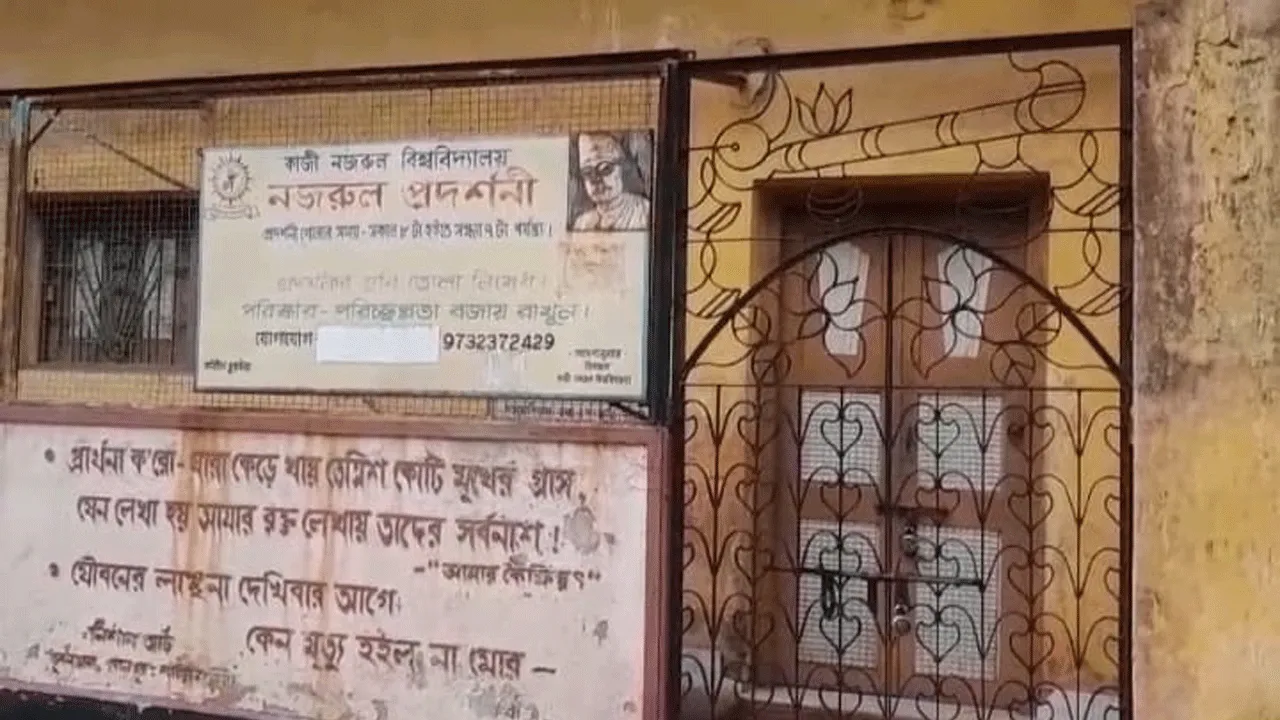 কাজী নজরুল বিশ্ববিদ্যালয়
নজরুল প্রদর্শনী
প্রদর্শনী খোলার সময় - সকাল ৮ টা হইতে সন্ধ্যা ৭ টা পর্যন্ত।
তোলা নিষেধ।
পরিষ্কার - পরিচ্ছন্নতা বজায় রাখুন।
যোগাযোগ 9732372429
• প্রার্থনা ক'রো - যারা কেড়ে খায় তেত্রিশ কোটি মুখের গ্রাস,
যেন লেখা হয় আমার রক্ত লেখায় তাদের সর্বনাশ!
- "আমার কৈফিয়ৎ"
• যৌবনের লাঞ্ছনা দেখিবার আগে
কেন মৃত্যু হইল না মোর —